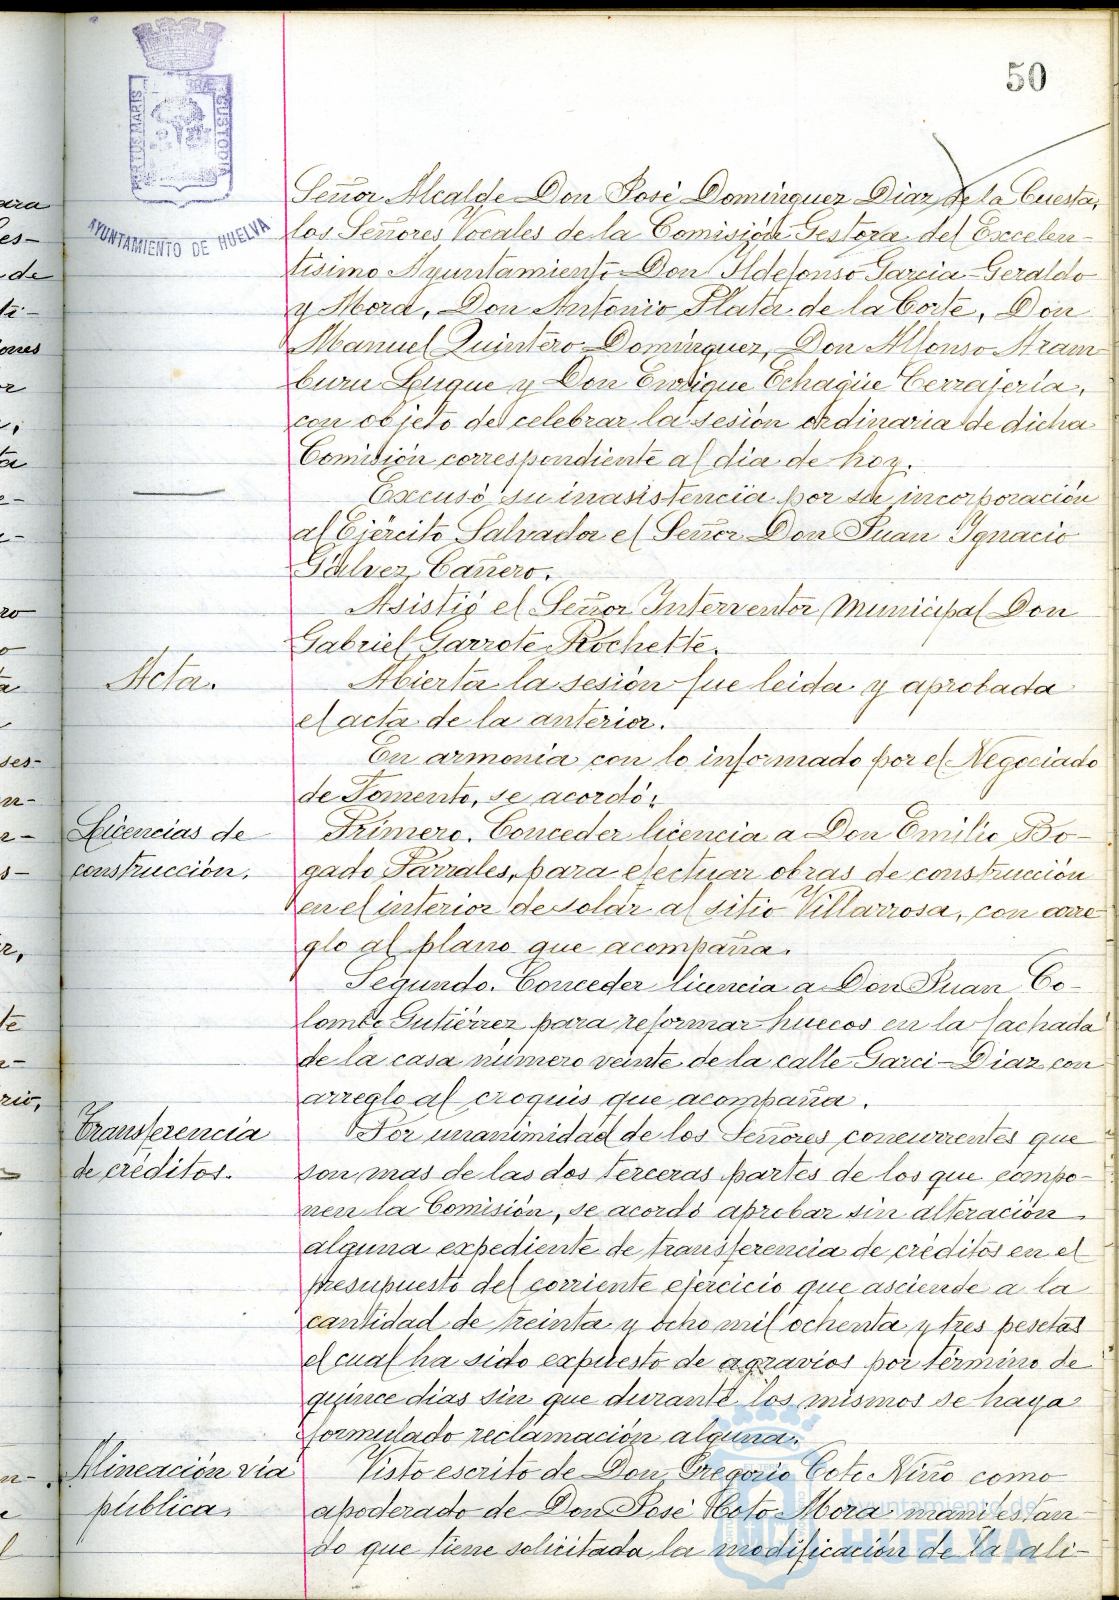 50
PORTUS MARIS
CUSTODIA
AYUNTAMIENTO DE HUELVA
Señor Alcalde Don José Domínguez Diaz de la Cuesta,
los Señores Vocales de la Comisión Gestora del Excelen-
tísimo Ayuntamiento Don Ildefonso Garcia-Geraldo
y Mora, Don Antonio Plata de la Corte, Don
Manuel Quintero Domínguez, Don Alfonso Aram
buru Luque y Don Enrique Echagüe Cerrajería,
con objeto de celebrar la sesión ordinaria de dicha
Comisión correspondiente al dia de hoy.
Excusó su inasistencia por su incorporación
al Ejército Salvador el Señor Don Juan Ignacio
Gálvez Cañero.
Asistió el Señor Interventor Municipal Don
Gabriel Garrote Rochette.
Acta.
Abierta la sesión fue leida y aprobada
el acta de la anterior.
En armonia con lo informado por el Negociado
de Fomento, se acordó:
Licencias de
construcción.
Primero. Conceder licencia a Don Emilio Bo-
gado Parrales, para efectuar obras de construcción
en el interior de solar al sitio Villarrosa, con arre
glo al plano que acompaña.
Segundo. Conceder licencia a Don Juan Co-
lombo Gutiérrez para reformar huecos en la fachada
de la casa número veinte de la calle Garci-Diaz con
arreglo al croquis que acompaña.
Transferencia
de créditos.
Por unanimidad de los Señores concurrentes que
son mas de las dos terceras partes de los que compo-
nen la Comisión, se acordó aprobar sin alteración
alguna expediente de transferencia de créditos en el
presupuesto del corriente ejercicio que asciende a la
cantidad de treinta y ocho mil ochenta y tres pesetas
el cual ha sido expuesto de agravios por término de
quince dias sin que durante los mismos se haya
formulado reclamación alguna.
Alineación via
pública.
Visto escrito de Don Gregorio Coto Niño como
apoderado de Don José Coto Mora manifestan-
do que tiene solicitada la modificación de la ali-
Ayuntamiento de
HUELVA